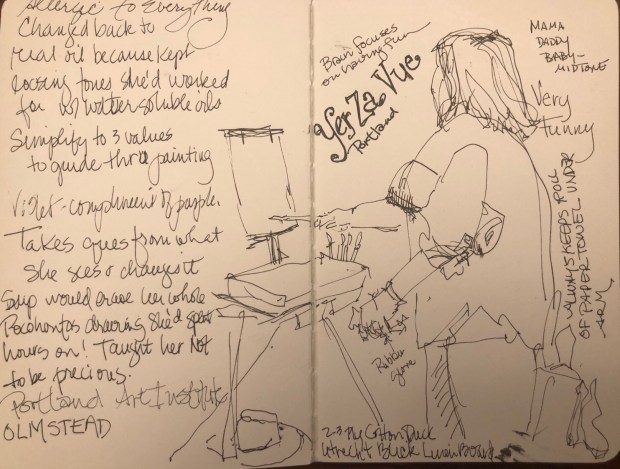 Allergic to Everything
Changed back to
real oil because kept
loosing tones she'd worked
for w/ water soluble oils
Simplify to 3 values
to guide thru painting
Violet - compliment of purple.
Takes ques from what
she sees & changes it
would erase her whole
Pocohontas drawing she'd spent
hours on! Taught her Not
to be precious.
Portland Art Institute
OLMSTEAD
Brain focuses
on having fun
Yer Za Vue
Portland
MAMA
DADDY
BABY-
MIDTONE
Very
Funny
ALWAYS KEEPS ROLL
OF PAPER TOWEL UNDER
ARM
Rubber
glove
2-3 Ply Cotton Duck
Utrecht Blick Linen Board